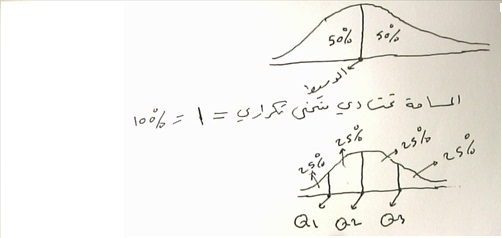 50% 50%
الوسيط
المساحة تحت أي منحنى تكراري = 1 = 100%
25% 25% 25% 25%
Q1 Q2 Q3